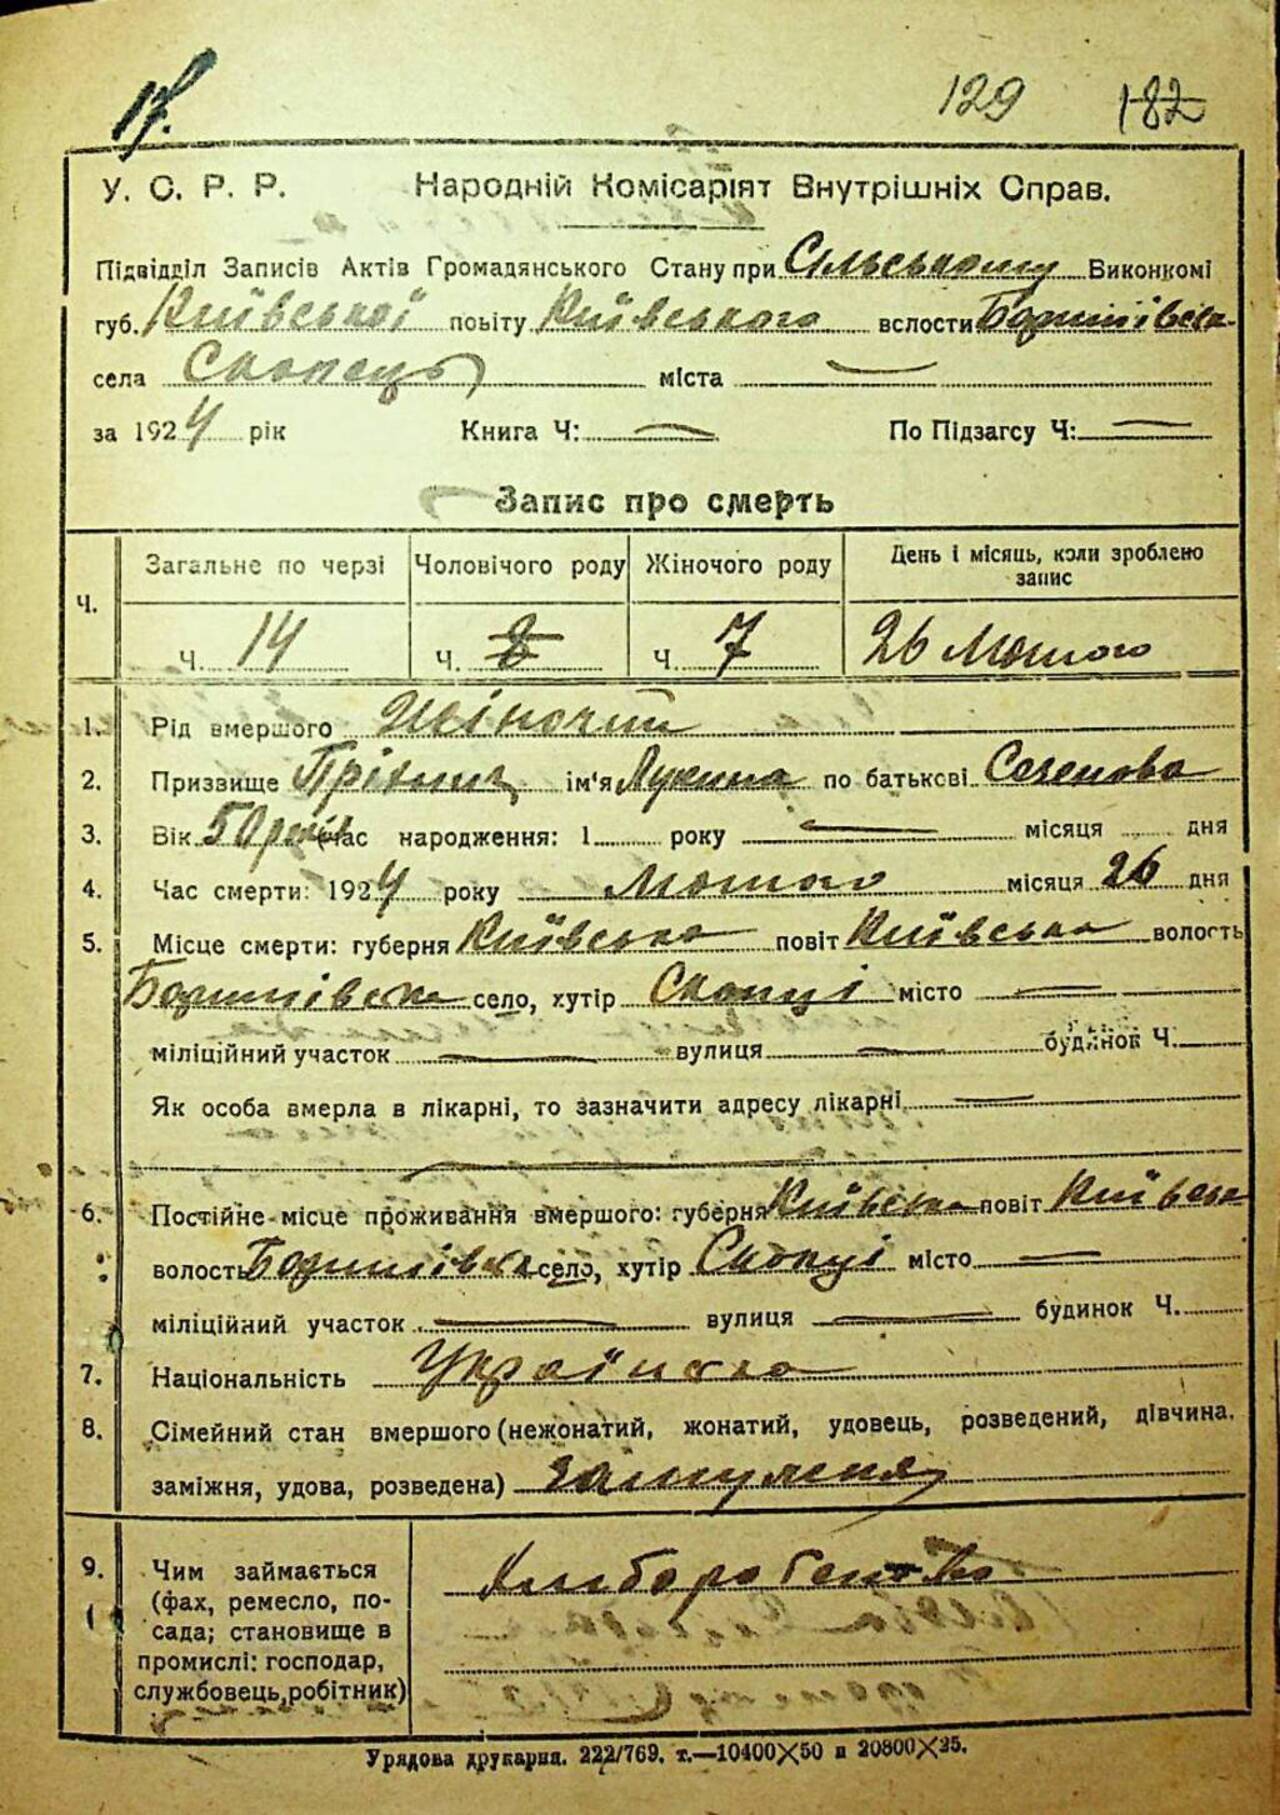 129 182
У. С. Р. Р. Народній Комісаріят Внутрішніх Справ.
Підвідділ Записів Актів Громадянського Стану при Сільському Виконкомі
губ. Київської повіту Київського волости
села Скопець міста —
за 1924 рік Книга Ч: — По Підзагсу Ч: —
Запис про смерть
Ч. Загальне по черзі Чоловічого роду Жіночого роду День і місяць, коли зроблено запис
Ч. 14 Ч. 8 Ч. 7 26 Лютого
1. Рід вмершого Жіночий
2. Призвище ім'я Лукина по батькові
3. Вік 50 років Час народження: 1 року — місяця дня
4. Час смерти: 1924 року Лютого місяця 26 дня
5. Місце смерти: губерня Київська повіт Київська волость
село, хутір Скопці місто —
міліційний участок — вулиця — будинок Ч.
Як особа вмерла в лікарні, то зазначити адресу лікарні —
—
6. Постійне місце проживання вмершого: губерня Київська повіт Київська
волость село, хутір Скопці місто —
міліційний участок — вулиця — будинок Ч.
7. Національність Українка
8. Сімейний стан вмершого (нежонатий, жонатий, удовець, розведений, дівчина.
заміжня, удова, розведена)
9. Чим займається Хліборобство
(фах, ремесло, по-
сада; становище в
промислі: господар,
службовець, робітник)
Урядова друкарня. 222/769. т.—10400×50 и 20800×25.